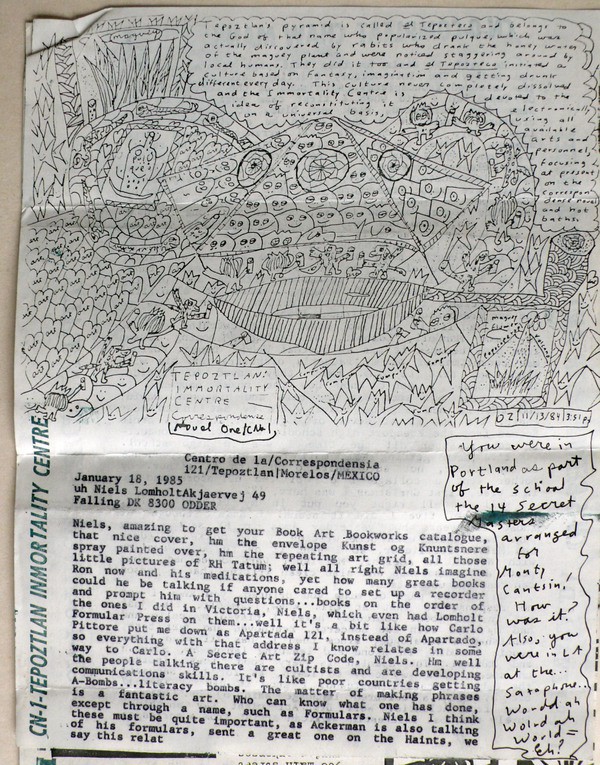 Tepoztlan's pyramid is called El Tepozteco and belongs to
the God of that name who popularized pulque, which were
actually discovered by rabits who drank the honey water
of the maguey plant and were noticed staggering around by
local humans. They did it too and El Tepozteco initiated a
culture based on fantasy, imagination and getting drunk
different every day. This culture never completely dissolved
and the Immortality Centre is devoted to the
idea of reconstituting it electronically
on a universal basis, using all
available
arts and
personnel,
focusing
at present
on the
correspondence
and hot
baths.
maguey
maguey
TEPOZTLAN:
IMMORTALITY
CENTRE
Correspondence
Novel One/CN1
OZ 11/13/84 3:51p
CN-1-TEPOZTLAN IMMORTALITY CENTRE
Centro de la/Correspondensia
121/Tepoztlan|Morelos/MEXICO
January 18, 1985
uh Niels LomholtAkjaervej 49
Falling DK 8300 ODDER
Niels, amazing to get your Book Art Bookworks catalogue,
that nice cover, hm the envelope Kunst og Knuntsnere
spray painted over, hm the repeating art grid, all those
little pictures of RH Tatum; well all right Niels imagine
Ron now and his meditations, yet how many great books
could he be talking if anyone cared to set up a recorder
and prompt him with questions...books on the order of
the ones I did in Victoria, Niels, which even had Lomholt
Formular Press on them...well it's a bit like how Carlo
Pittore put me down as Apartada 121, instead of Apartado,
so everything with that address I know relates in some
way to Carlo. A Secret Art Zip Code, Niels. Hm well
the people talking there are cultists and are developing
communications skills. It's like poor countries getting
A-Bombs...literacy bombs. The matter of making phrases
is a fantastic art. Who can know what one has done,
except through a name, such as Formulars. Niels I think
these must be quite important, as Ackerman is also talking
of his formulars, sent a great one on the Haints, we
say this relat
You were in
Portland as part
of the school
the 14 Secret
Masters
arranged
for
Monty
Cantsin,
How
was it?
Also, you
were in LA
at the...
Saxophone...
World ah
World ah
World =
Eh?